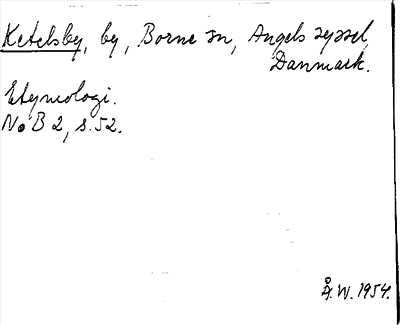 Ketelsby, by, Borne sn, Angels syssel,
Danmark.
Etymologi.
NoB 2, s. 52.
Å. W. 1954.